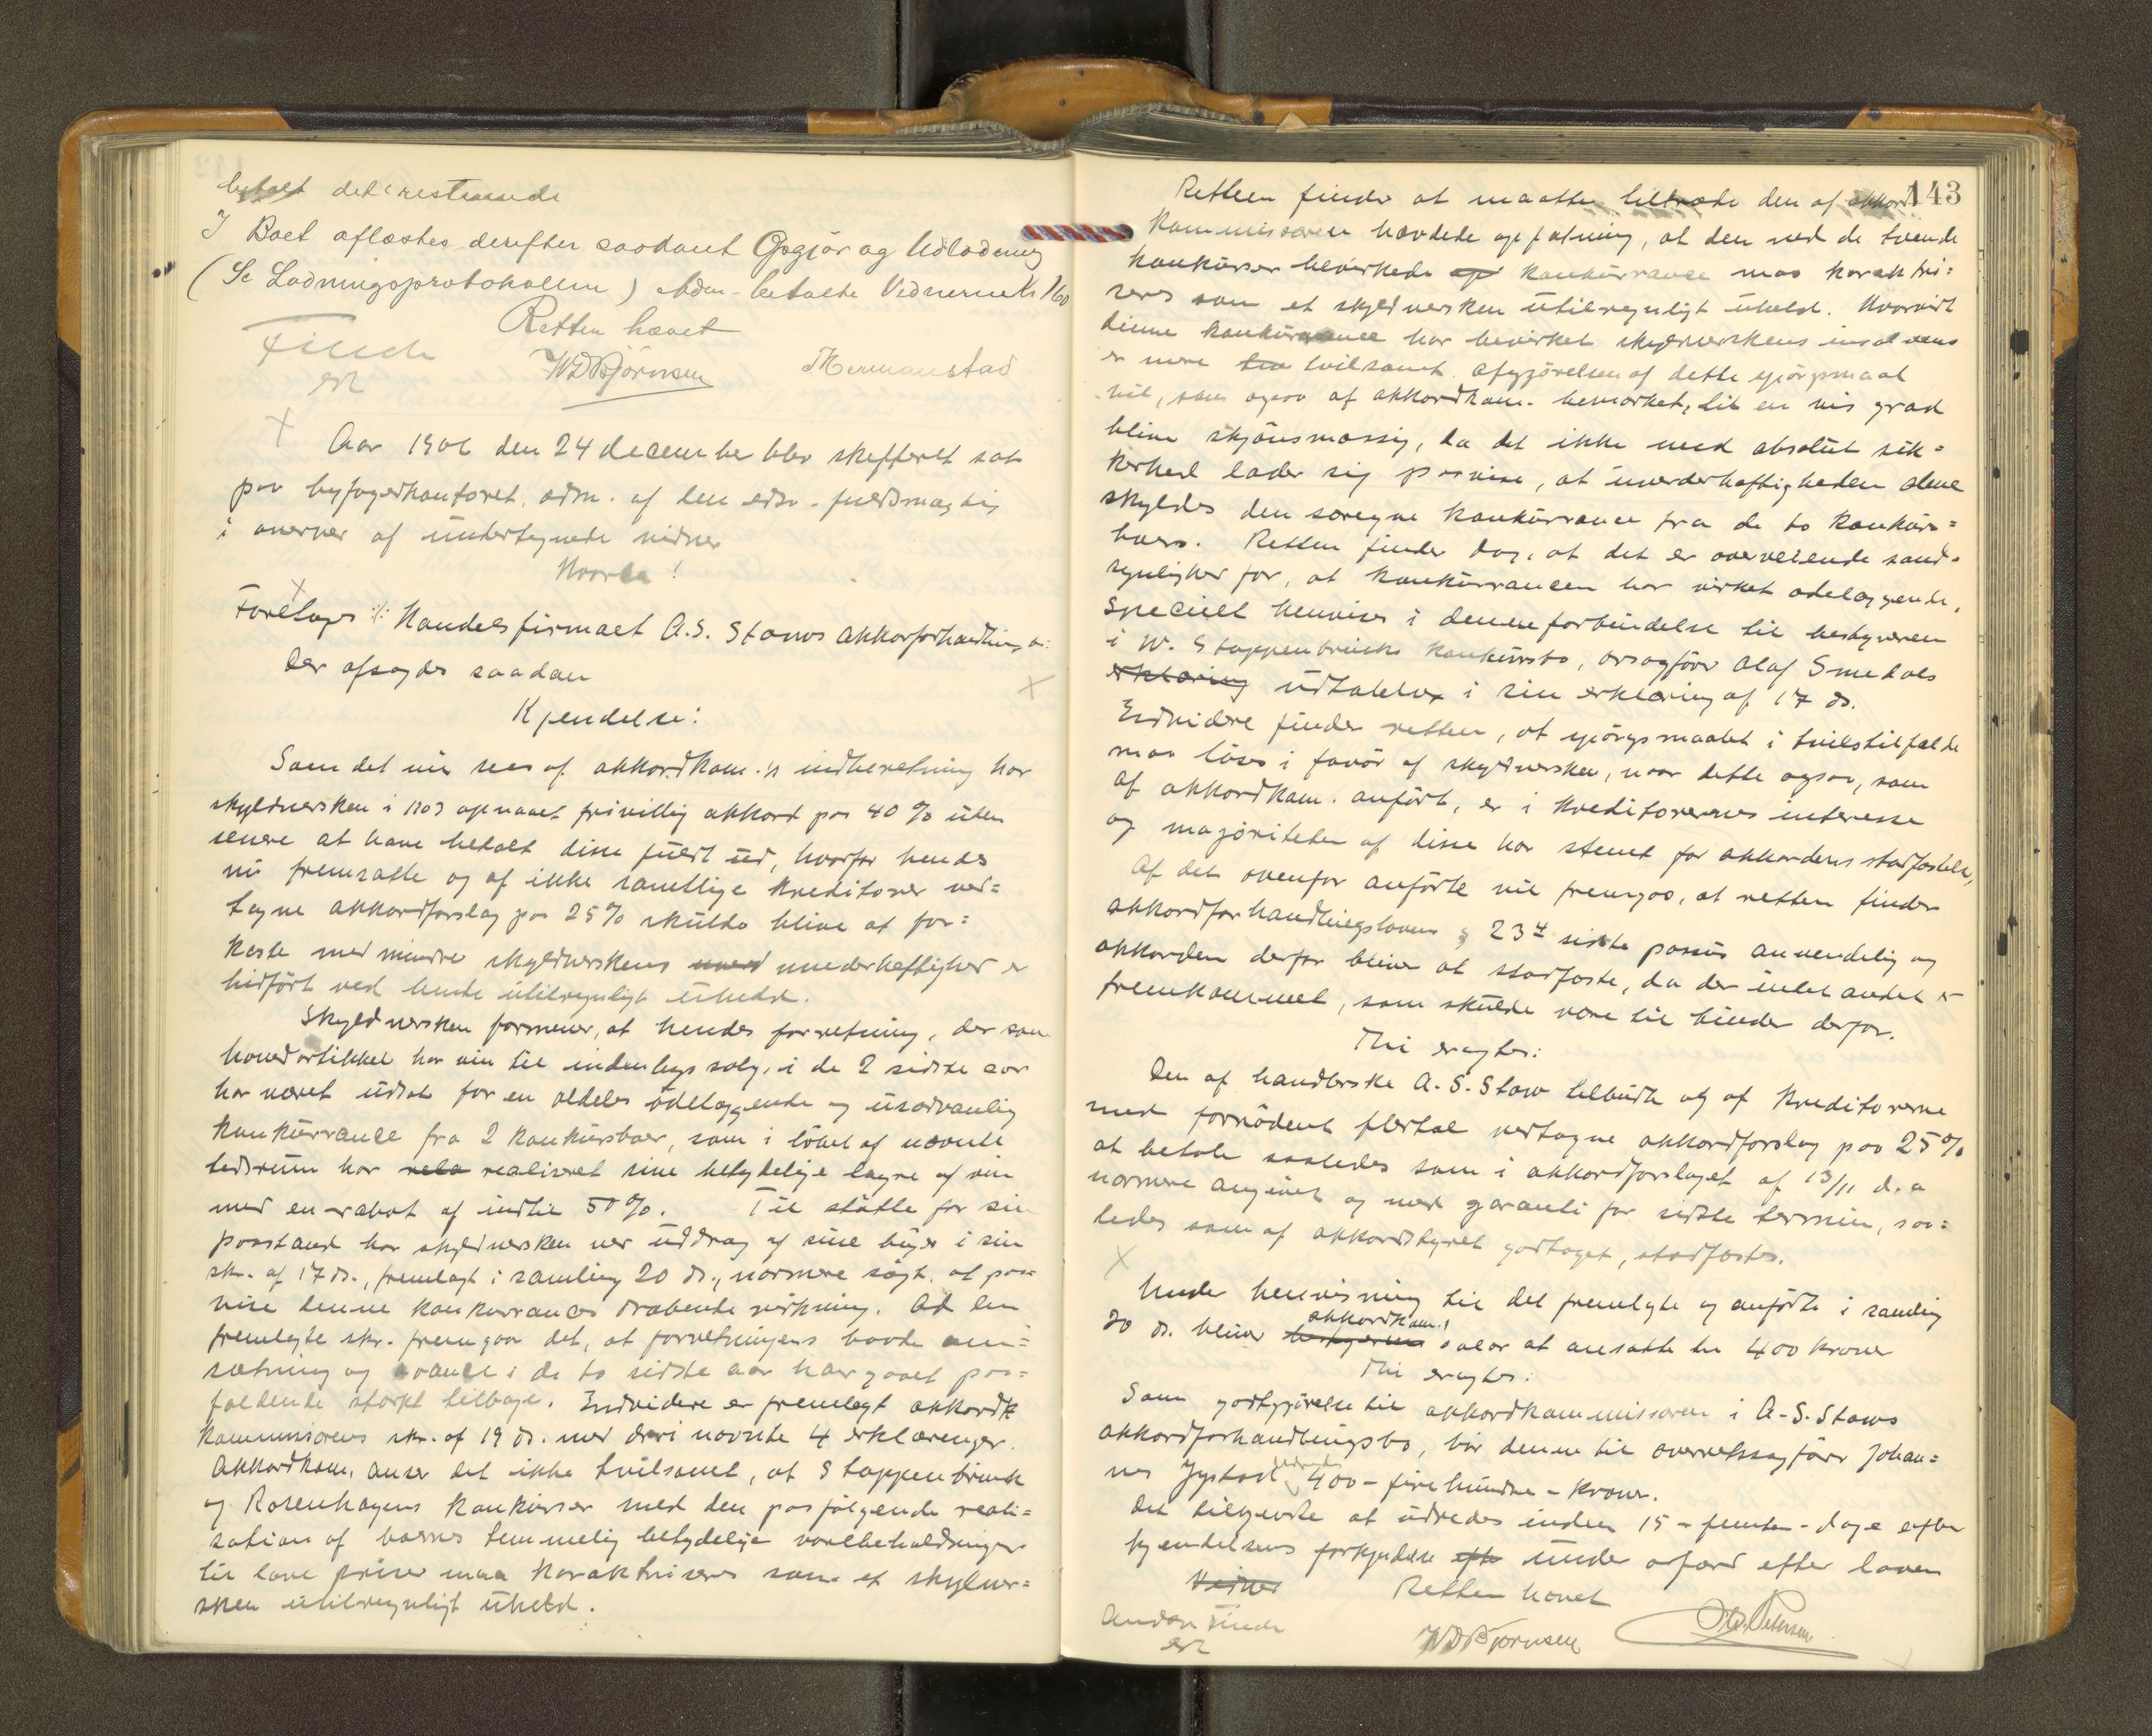 betalt det resterende
I Boet aflæstes derefter saadant Opgjør og Udlodning
(Se Lodningsprotokollen) Adm. betalte Vidnerne Kr 1.60
Retten hævet
Finde
WDBjørnsen
Hermanstad
Aar 1906 den 24 december blev skifteret sat
paa byfogedkontoret, adm. af den edsv. fuldmægtig
i overvær af undertegnede vidner
Hvorda!
Foretoges :/: Handelsfirmaet A.S. Staws akkordforhandlingsbo:
Der afsagdes saadan
Kjendelse:
Som det vil sees af akkordkom.'s indberetning har
skyldnersken i 1903 opnaaet frivillig akkord paa 40 % uten
senere at have betalt disse fuldt ud, hvorfor hendes
nu fremsatte og af ikke samtlige kreditorer ved=
tagne akkordforslag paa 25 % skulde blive at for=
kaste med mindre skyldnerskens uvederheftighed er
hidført ved hende utilregneligt uheld.
Skyldnersken formener, at hendes forretning, der som
hovedartikkel har vin til indenbys salg, i de 2 sidste aar
har været udsat for en aldeles ødelæggende og usædvanlig
konkurrance fra 2 konkursboer, som i løbet af nævnte
tidsrum har rela realiseret sine betydelige lagre af vin
med en rabat af indtil 50 %. Til støtte for sin
paastand har skyldnersken ved uddrag af sine bøger i sin
skr. af 17 ds., fremlagt i samling 20 ds., nærmere søgt at paa=
vise denne konkurrances dræbende virkning. Ad den
fremlagte skr. fremgaar det, at forretningens baade om=
sætning og avance i de to sidste aar har gaaet paa=
faldende stærkt tilbage. Endvidere er fremlagt akkordk
kommissærens skr. af 19 ds. med deri nævnte 4 erklæringer.
Akkordkom. anser det ikke tvilsomt, at Stoppenbrink
og Rosenhagens konkurser med den paafølgende reali=
sation af boernes temmelig betydelige varebeholdninger
til lave priser maa karakteriseres som et skyldner=
sken utilregneligt uheld.
143
Retten finder at maatte tiltræde den af akkord
kommissæren hævdede opfatning, at den ved de tvende
konkurser bevirkede konkurrance maa karakteri=
seres som et skyldnersken utilregneligt uheld. Hvorvidt
denne konkurrance har bevirket skyldnerskens insolvens
er mere tvilsomt. Afgjørelsen af dette spørgsmaal
vil, som ogsaa af akkordkom. bemærket, til en vis grad
blive skjønsmæssig, da det ikke med absolut sik=
kerhed lader sig paavise, at uvederheftigheden alene
skyldes den særegne konkurrance fra de to konkurs=
boer. Retten finder dog, at det er overveiende sand=
synlighed for, at konkurrancen har virket ødelæggende.
Specielt henvises i denne forbindelse til bestyreren
i W. Stoppenbrinks konkursbo, orsagfører Olaf Smedals
erklæring udtalelse i sin erklæring af 17 ds.
Endvidere finder retten, at spørgsmaalet i tvilstilfælde
maa løses i favør af skyldnersken, naar dette ogsaa, som
af akkordkom. anført, er i kreditorernes interesse
og majoriteten af disse har stemt for akkordens stadfæstelse,
Af det ovenfor anførte vil fremgaa, at retten finder
akkordforhandlingslovens § 23 4 sidste passus anvendelig og
akkorden derfor bliver at stadfæste, da der intet andet er
fremkommet, som skulde være til hinder derfor.
Thi eragtes:
Den af handlerske A.S. Staw tilbudte og af kreditorerne
med fornødent flertal vedtagne akkordforslag paa 25 %
at betale saaledes som i akkordforslaget af 13/11 d.a
nærmere angivet og med garanti for sidste termin, saa=
ledes som af akkordstyret godtaget, stadfæstes.
Under henvisning til det fremlagte og anførte i samling
20 ds. bliver bestyrerens akkordkom.'s salær at ansætte til 400 kroner
Thi eragtes:
Som godtgjørelse til akkordkommissæren i A.S. Staws
akkordforhandlingsbo, bør denne til overretssagfører Johan=
nes Jystad udrede 400 – fire hundre – kroner.
Det tilkjendte at udredes inden 15 – femten – dage efter
kjendelsens forkyndelse efte under adfærd efter loven
Vidner
Retten hævet
Andor Finde
WDBjørnsen
Petersen